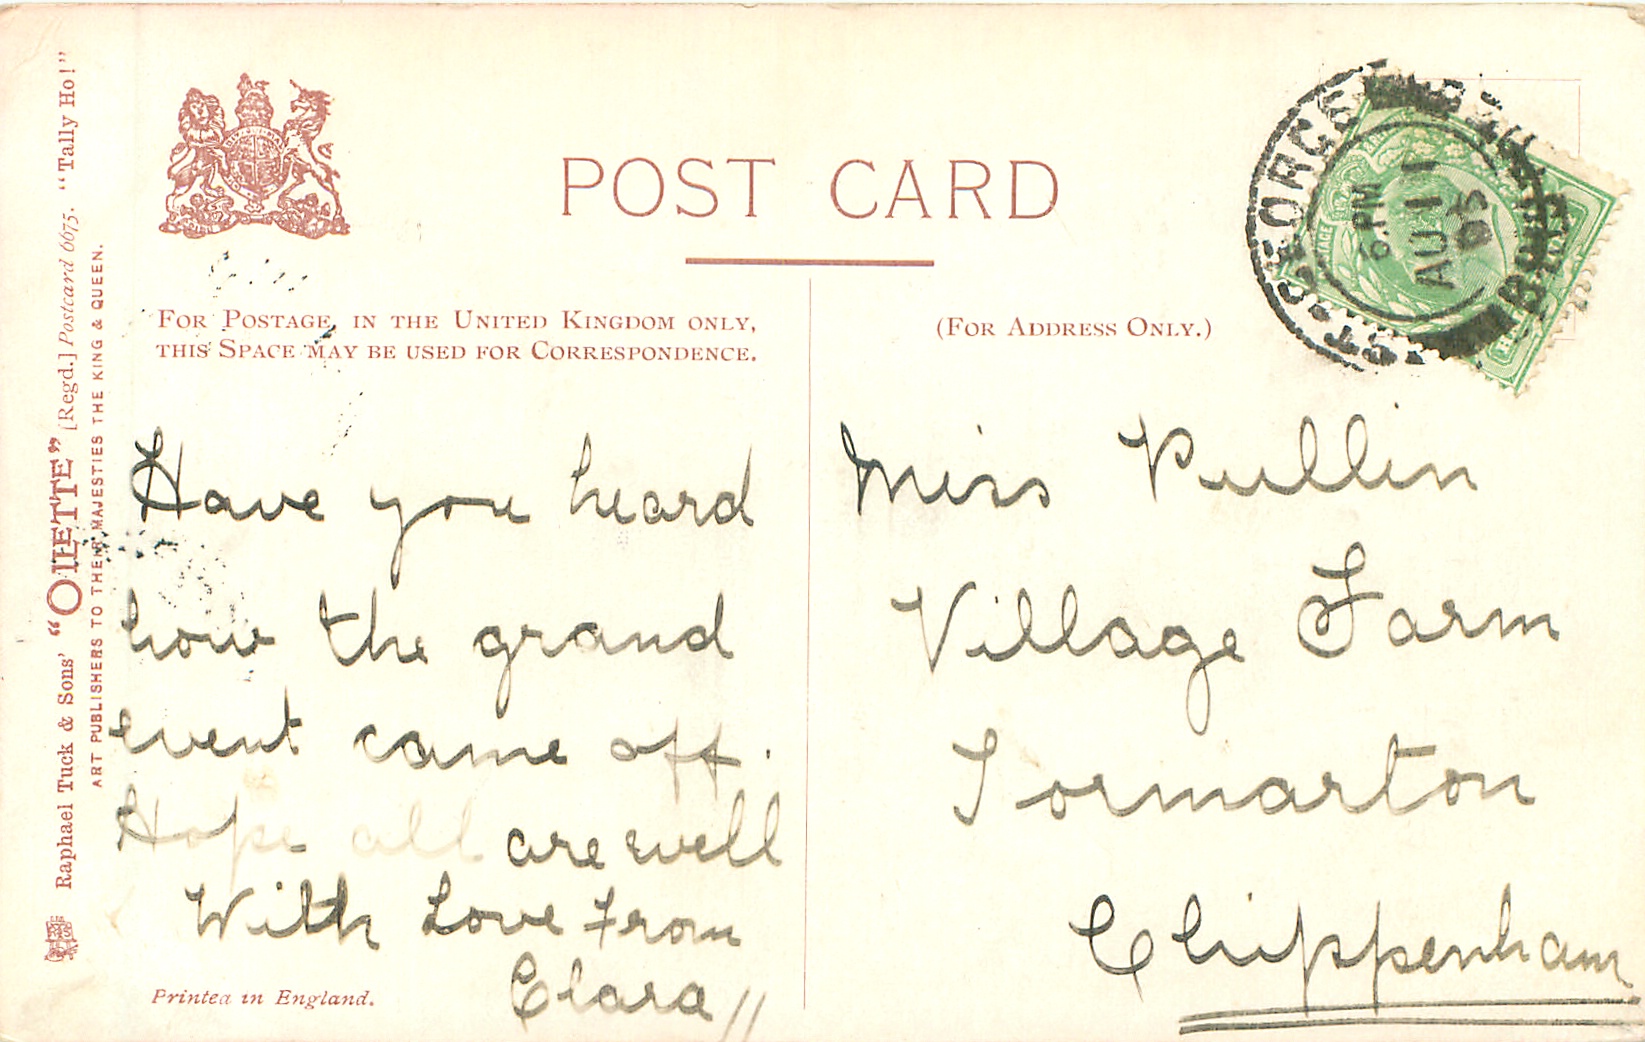 POST CARD
FOR POSTAGE, IN THE UNITED KINGDOM ONLY,
THIS SPACE MAY BE USED FOR CORRESPONDENCE.
(FOR ADDRESS ONLY.)
Have you heard
how the grand
event came off.
Hope all are well
With Love from
Clara //
Printed in England.
Miss Pullin
Village Farm
Tormarton
Chippenham
Raphael Tuck & Sons' "OILETTE" [Regd.] Postcard 6675. "Tally Ho!"
ART PUBLISHERS TO THEIR MAJESTIES THE KING & QUEEN.
6. PM
AU 11
05